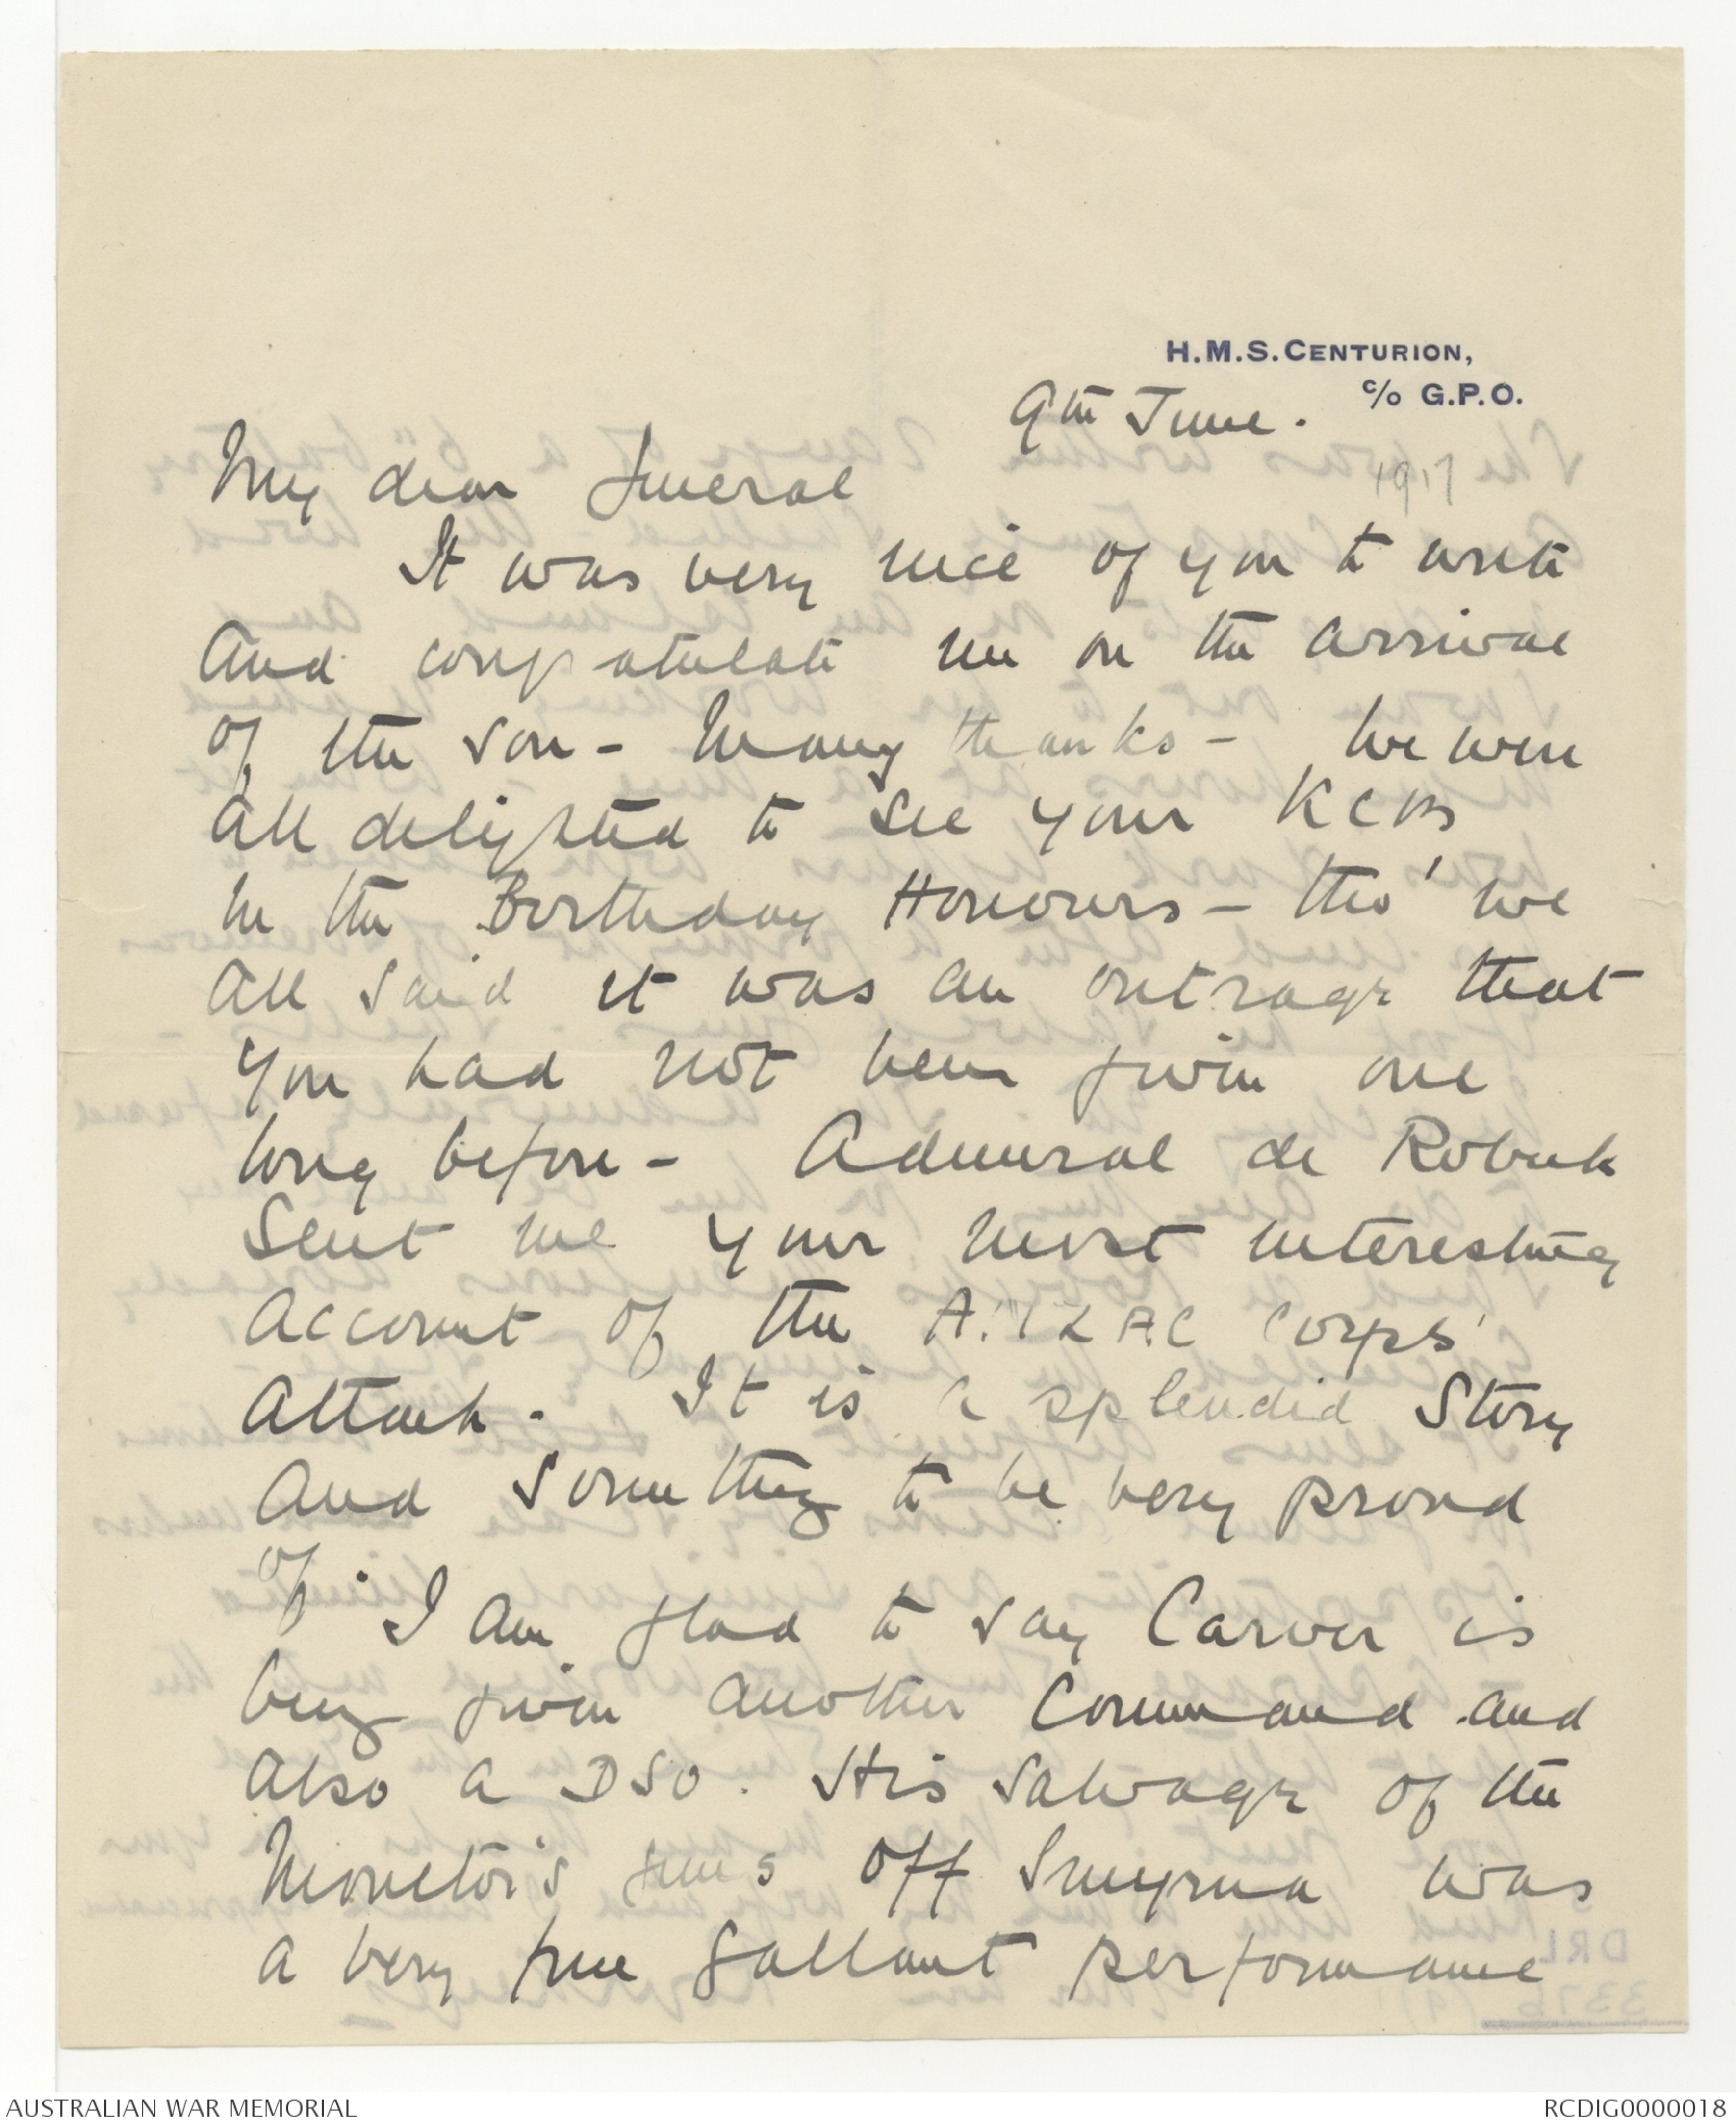 H.M.S. CENTURION,
c/o G.P.O.
9th June.
1917
My dear General
It was very nice of you to write
and congratulate me on the arrival
of the son - Many thanks - We were
all delighted to see your KCB
in the Birthday Honours - tho' we
all said it was an outrage that
you had not been given one
long before - Admiral de Robeck
sent me your most interesting
account of the ANZAC Corps'
attack. It is a splendid story
and something to be very proud
of. I am glad to say Carver is
being given another Command and
also a DSO. His salvage of the
Monitor's guns off Smyrna was
a very fine gallant performance
DRL
3376
AUSTRALIAN WAR MEMORIAL
RCDIG0000018